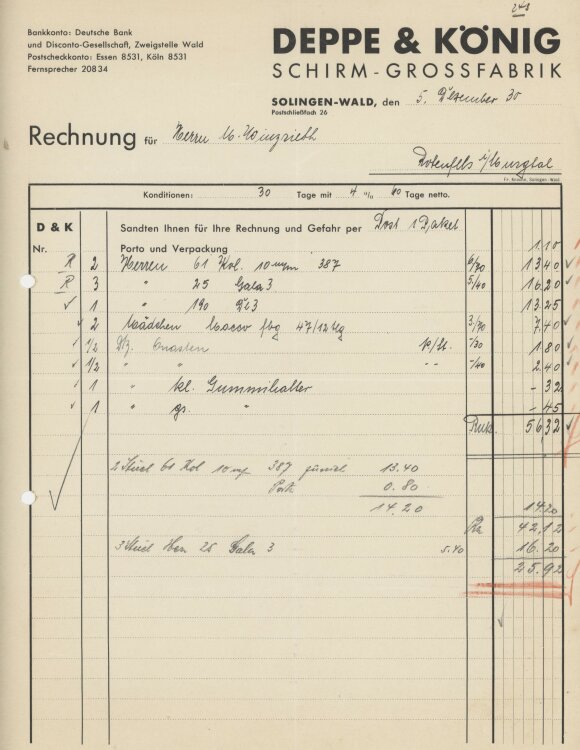 248
Bankkonto: Deutsche Bank
und Disconto-Gesellschaft, Zweigstelle Wald
Postscheckkonto: Essen 8531, Köln 8531
Fernsprecher 20834
DEPPE & KÖNIG
SCHIRM-GROSSFABRIK
SOLINGEN-WALD, den 5. Dezember 30
Postschließfach 26
Rechnung für Herrn
Rotenfels i/Murgtal
Konditionen: 30 Tage mit 4 % 60 Tage netto.
D & K Sandten Ihnen für Ihre Rechnung und Gefahr per Post 1 Paket
Nr. Porto und Verpackung 1.10
R 2 Herren 61 Kol. 10 387 6/70 13.40
R 3 " 25 Gala 3 5/40 16.20
1 " 190 3 13.25
2 Mädchen Macco fbg 47/12 3/70 7.40
1/2 Dtz. Quasten -/30 1.80
1/2 " " -/40 2.40
1 " kl. Gummihalter - 32
1 " gr. " - 45
Rmk. 56.32
2 Stück 61 Kol 10 387 zurück 13.40
Porto 0.80
14.20 14.20
42.12
3 Stück Herr 25 Gala 3 5.40 16.20
25.92